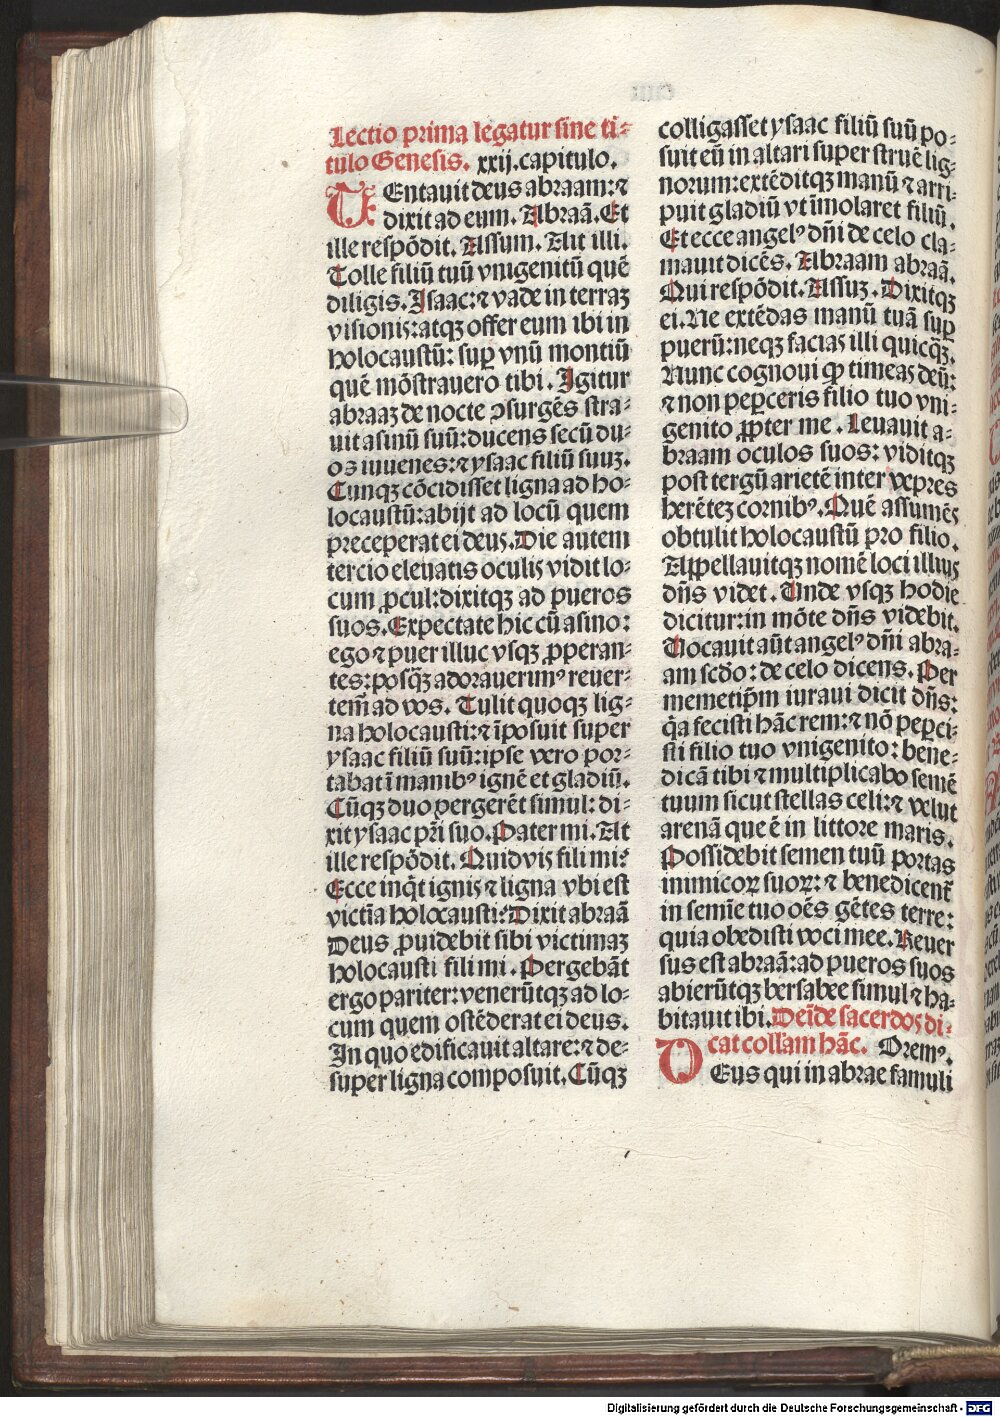 Lectio prima legatur sine ti⸗
tulo Genesis. xxij. capitulo.
TEntauit deus abraam: ⁊
dixit ad eum. Abraã. Et
ille respõdit. Assum. Ait illi.
Tolle filiũ tuũ vnigenitũ quẽ
diligis. Isaac: ⁊ vade in terraꝫ
visionis: atqꝫ offer eum ibi in
holocaustũ: suꝑ vnũ montiũ
quẽ mõstrauero tibi. Igitur
abraaꝫ de nocte ꝯsurgẽs stra⸗
uit asinũ suũ: ducens secũ du⸗
os iuuenes: ⁊ ysaac filiũ suuꝫ.
Cunqꝫ cõcidisset ligna ad ho⸗
locaustũ: abijt ad locũ quem
preceperat ei deus. Die autem
tercio eleuatis oculis vidit lo⸗
cum ꝓcul: dixitqꝫ ad pueros
suos. Expectate hic cũ asino:
ego ⁊ puer illuc vsqꝫ ꝓperan⸗
tes: posqꝫ̃ adorauerimꝰ reuer⸗
tem̃ ad vos. Tulit quoqꝫ lig⸗
na holocausti: ⁊ ĩposuit super
ysaac filiũ suũ: ipse vero por⸗
tabat ĩ manibꝰ ignẽ et gladiũ.
Cũqꝫ duo pergerẽt simul: di⸗
xit ysaac pr̃i suo. Pater mi. At
ille respõdit. Quid vis fili mi?
Ecce inq̃t ignis ⁊ ligna vbi est
victĩa holocausti? Dixit abraã
Deus ꝓuidebit sibi victimaꝫ
holocausti fili mi. Pergebãt
ergo pariter: venerũtqꝫ ad lo⸗
cum quem ostẽderat ei deus.
In quo edificauit altare: ⁊ de⸗
super ligna composuit. Cũqꝫ
colligasset ysaac filiũ suũ po⸗
suit eũ in altari super struẽ lig⸗
norum: extẽditqꝫ manũ ⁊ arri⸗
puit gladiũ vt ĩmolaret filiũ.
Et ecce angelꝰ dñi de celo cla⸗
mauit dicẽs. Abraam abraã.
Qui respõdit. Assuꝫ. Dixitqꝫ
ei. Ne extẽdas manũ tuã suꝑ
puerũ: neqꝫ facias illi quicqꝫ̃.
Nunc cognoui ꝙ timeas deũ:
⁊ non peꝑceris filio tuo vni⸗
genito ꝓpter me. Leuauit a⸗
braam oculos suos: viditqꝫ
post tergũ arietẽ inter vepres
herẽteꝫ cornibꝰ. Quẽ assumẽs
obtulit holocaustũ pro filio.
Appellauitqꝫ nomẽ loci illius
dñs videt. Unde vsqꝫ hodie
dicitur: in mõte dñs videbit.
Uocauit aũt angelꝰ dñi abra⸗
am scďo: de celo dicens. Per
memetip̃m iuraui dicit dñs:
q̃a fecisti hãc rem: ⁊ nõ peꝑci⸗
sti filio tuo vnigenito: bene⸗
dicã tibi ⁊ multiplicabo semẽ
tuum sicut stellas celi: ⁊ velut
arenã que ẽ in littore maris.
Possidebit semen tuũ portas
inimicoꝝ suoꝝ: ⁊ benedicent̃
in semĩe tuo oẽs gẽtes terre:
quia obedisti voci mee. Reuer
sus est abraã: ad pueros suos
abierũtqꝫ bersabee simul ⁊ ha⸗
bitauit ibi. Deĩde sacerdos di⸗
cat collam hãc. Oremꝰ.
DEus qui in abrae famuli
Digitalisierung gefördert durch die Deutsche Forschungsgemeinschaft - DFG